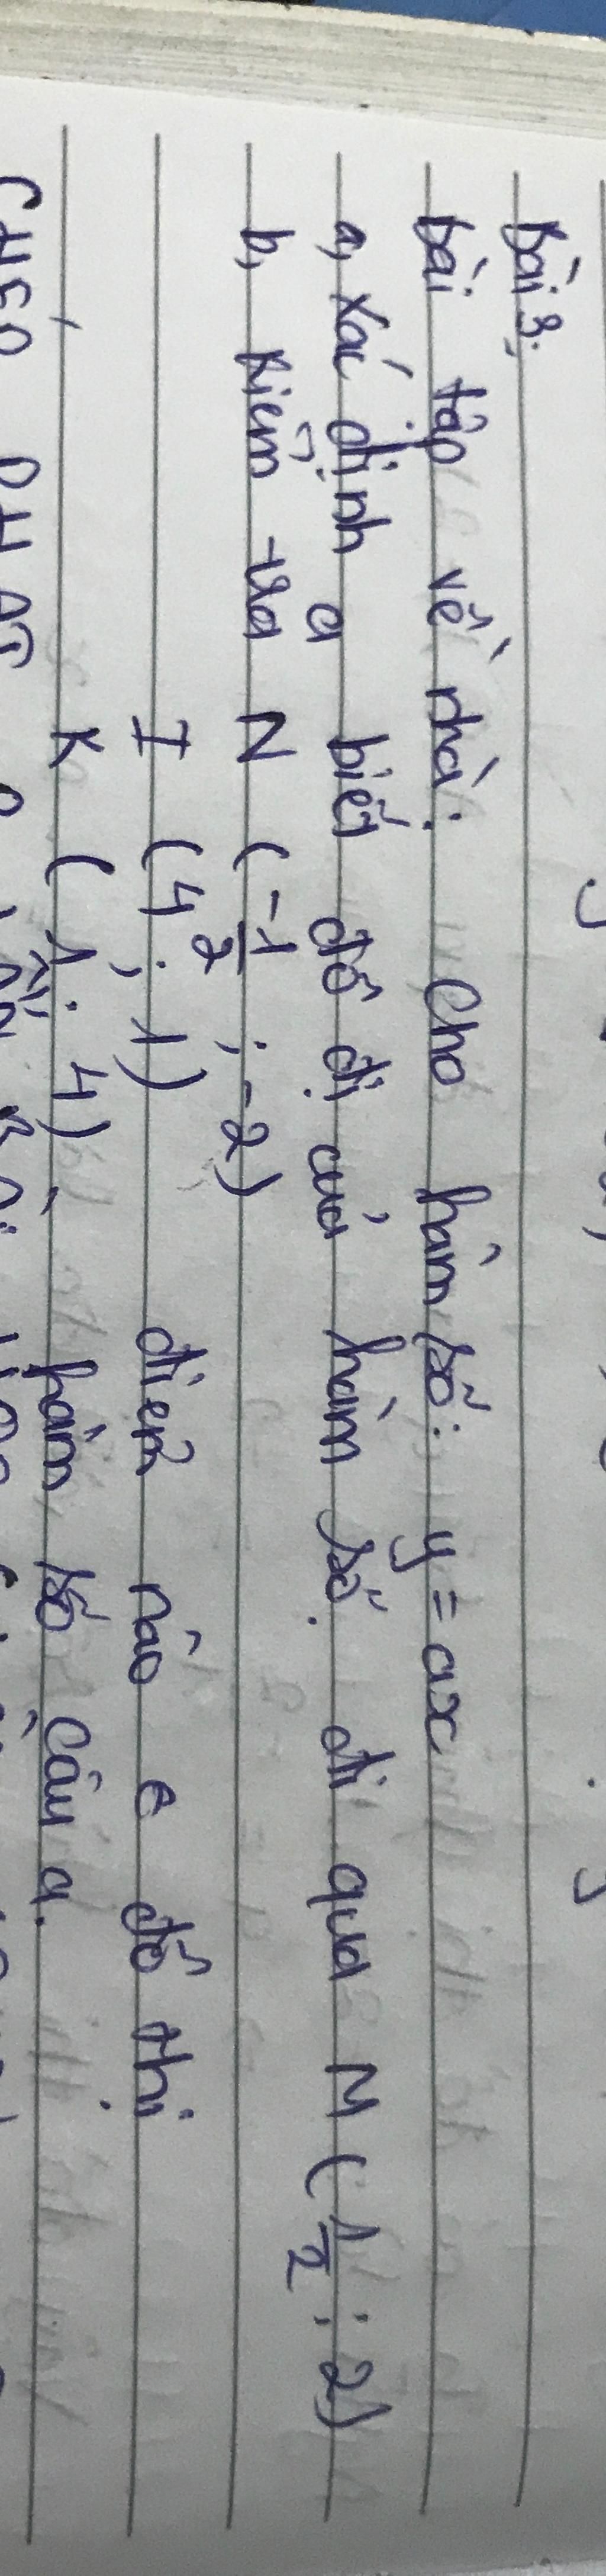 Bài 3:
bài tập về nhà: Cho hàm số: y = ax
a, Xác định a biết đồ thị của hàm số. đi qua M (1/2; 2)
b, Kiểm tra N (-1/2; -2)
I (4; 1) điểm nào ∈ đồ thị
K (1; 4) hàm số câu a.